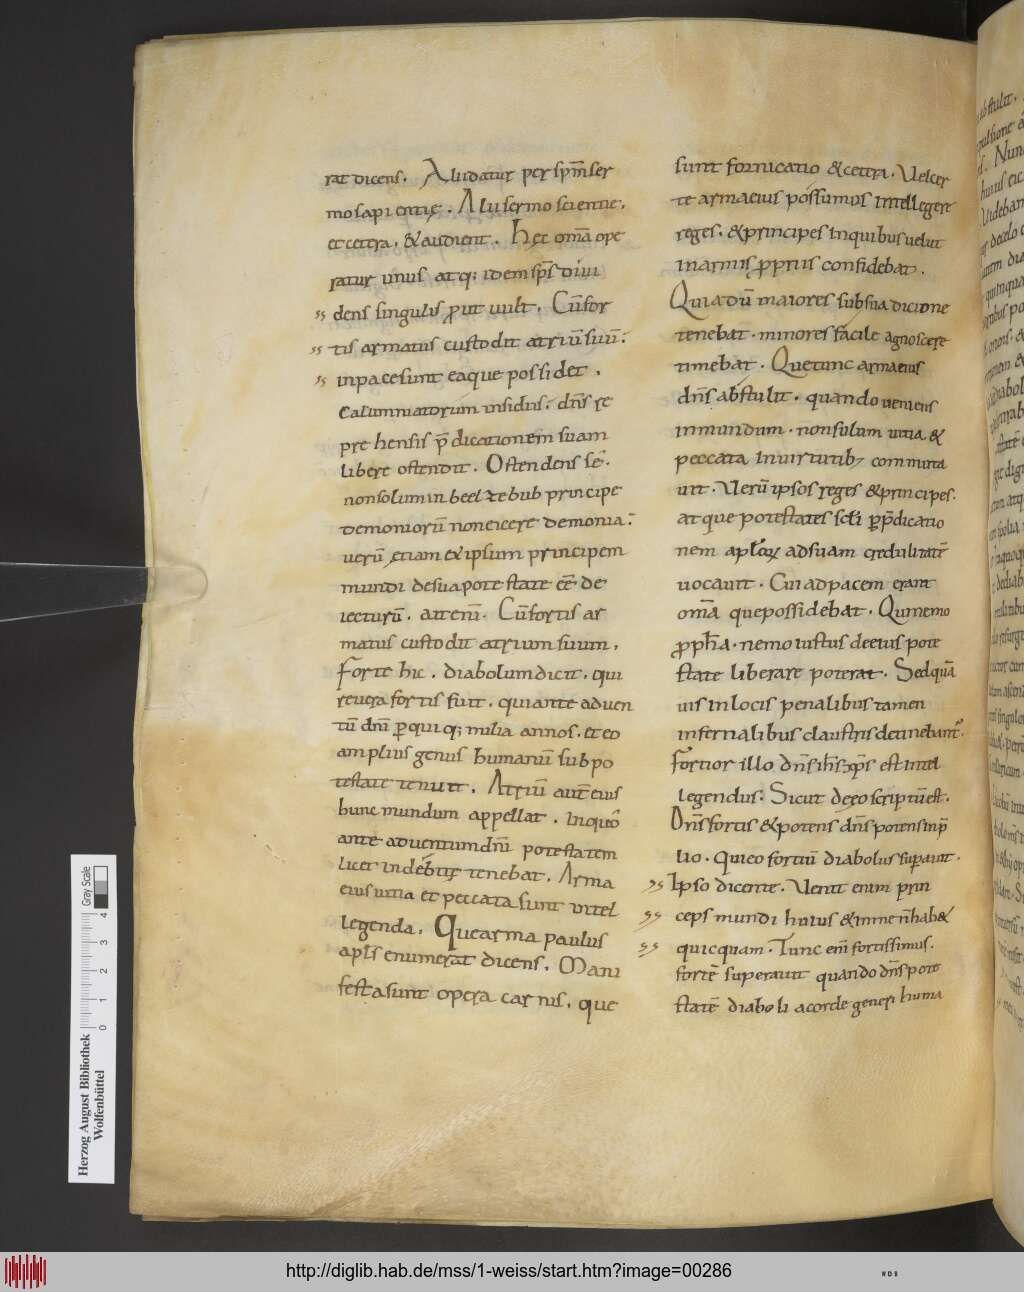 rat dicens. Alii datur per sp̄m ser
mo sapientię. Alii sermo scientie.
et cetera. & audient. Hęc om̄a ope
ratur unus atq; idem sp̄s divi
dens singulis ꝓut vult. Cū for
tis armatus custodit atriū suū.
in pace sunt ea que possidet.
Calumniatorum insidiis. dn̄s re
pre hensis p̄dicationem suam
libere ostendit. Ostendens sē.
non solum in beelzebub principe
demoniorū non eicere demonia.
verū etiam & ipsum principem
mundi de sua potestate eē de
iecturū. ait eni. Cū fortis ar
matus custodit atrium suum.
Forte hic. diabolum dicit. qui
revera fortis fuit. qui ante adven
tū dn̄i ꝑ quinq; milia annos. et eo
amplius genus humanū sub po
testate tenuit. Atriū aut̄ eius
hunc mundum appellat. in quo
ante adventum dn̄i potestatem
licet indebitę tenebat. Arma
eius vitia et peccata sunt intel
legenda. Que arma paulus
apl̄s enumerat dicens. Mani
festa sunt opera carnis. que
sunt fornicatio & cetera. Vel cer
te arma eius possumus intellegere
reges. & principes in quibus velut
in armis ꝓpriis confidebat.
Qui a dū maiores sub sua dicione
tenebat. minores facile agnoscere
timebat. Que tunc arma eius
dn̄s abstulit. quando veniens
in mundum. non solum vitia &
peccata in virtutib; commuta
vit. Verū ipsos reges & principes.
atque potestates sc̄li ꝑ p̄dicatio
nem aplōꝝ ad suam credulitatē
vocavit. Cui ad pacem erant
om̄a que possidebat. Qui nemo
ꝓph̄a. nemo iustus de eius pote
state liberare poterat. Sed quā
vis in locis penalibus tamen
infernalibus claustris detinebant̄.
Fortior illo dn̄s ih̄s xp̄s est intel
legendus. Sicut de eo scriptū est.
Dn̄s fortis & potens dn̄s potens in p̄
lio. Qui eo fortiū diabolus suꝑavit.
Ipso dicente. Venit enim prin
ceps mundi huius & in me n̄ hab&
quicquam. Tunc em̄ fortissimus.
fortē superavit quando dn̄s pote
statē diaboli a corde generi huma
Herzog August Bibliothek
Wolfenbüttel
0 1 2 3 4
Gray Scale
http://diglib.hab.de/mss/1-weiss/start.htm?image=00286